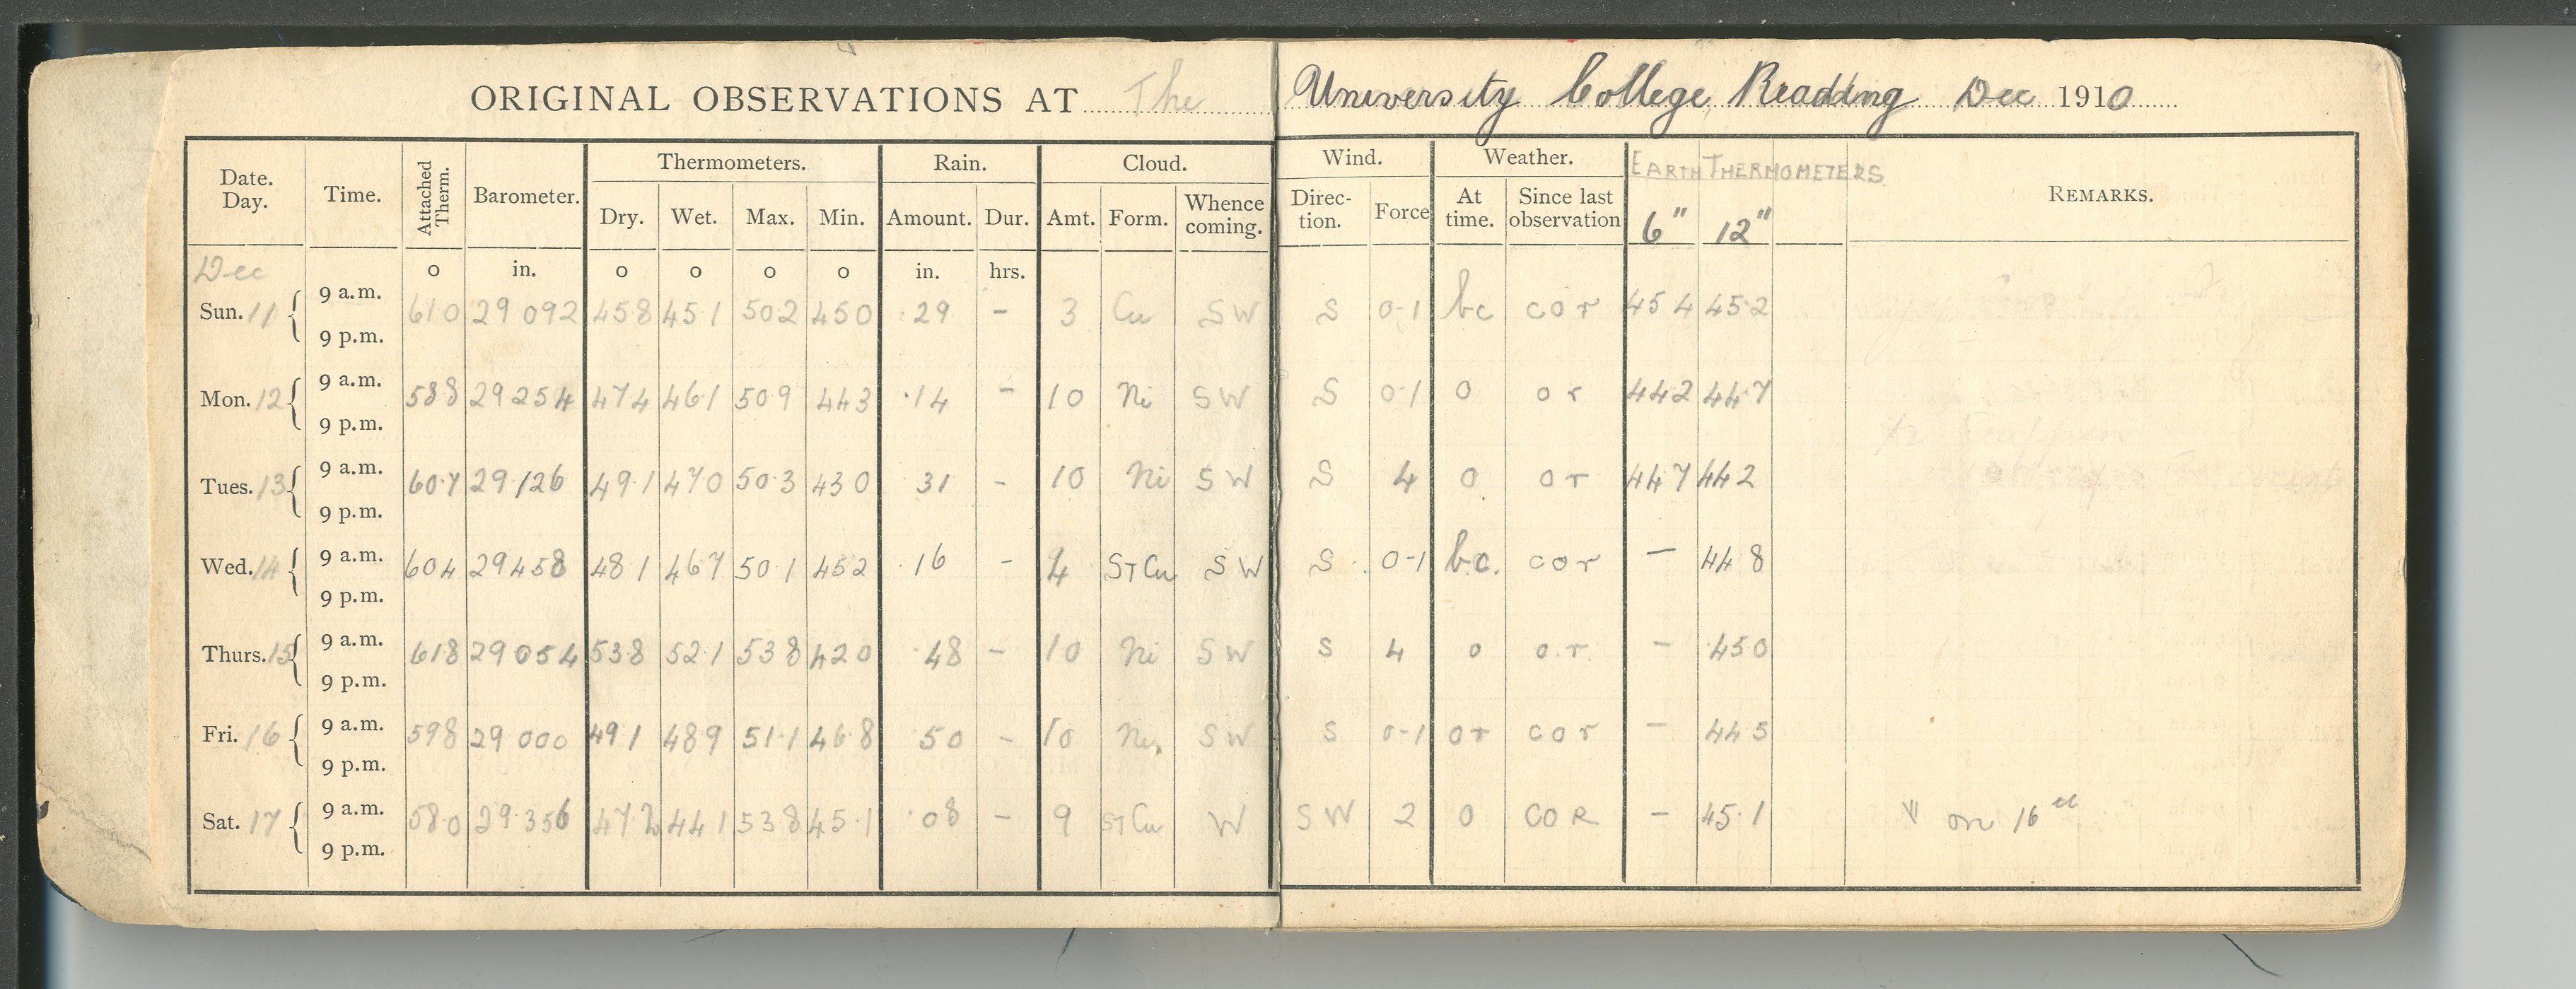 ORIGINAL OBSERVATIONS AT The University College Reading Dec 1910
Date. Day. Time. Attached Therm. Barometer. Thermometers. Rain. Cloud. Wind. Weather. EARTH THERMOMETERS REMARKS.
Dry. Wet. Max. Min. Amount. Dur. Amt. Form. Whence coming. Direction. Force At time. Since last observation 6" 12"
Dec o in. o o o o in. hrs.
Sun. 11 9 a.m. 61 0 29 092 45 8 45 1 50 2 45 0 .29 - 3 Cu SW S 0-1 bc cor 45 4 45.2
9 p.m.
Mon. 12 9 a.m. 58 8 29 254 47 4 46 1 50 9 44 3 .14 - 10 Ni SW S 0-1 o or 44 2 44.7
9 p.m.
Tues. 13 9 a.m. 60.7 29 126 49.1 47 0 50.3 43 0 31 - 10 Ni SW S 4 o or 44 7 44 2
9 p.m.
Wed. 14 9 a.m. 60 4 29 458 48 1 46 7 50 1 45 2 .16 - 4 ST Cu SW S 0-1 b.c. cor - 44 8
9 p.m.
Thurs. 15 9 a.m. 61 8 29 054 53 8 52 1 53 8 42 0 .48 - 10 Ni SW S 4 o o.r. - 45 0
9 p.m.
Fri. 16 9 a.m. 59 8 29 000 49 1 48 9 51.1 46 8 .50 - 10 Ni SW S 0-1 or cor - 44 5
9 p.m.
Sat. 17 9 a.m. 58.0 29.356 47 2 44 1 53 8 45.1 .08 - 9 ST Cu W SW 2 o COR - 45.1 on 16th
9 p.m.